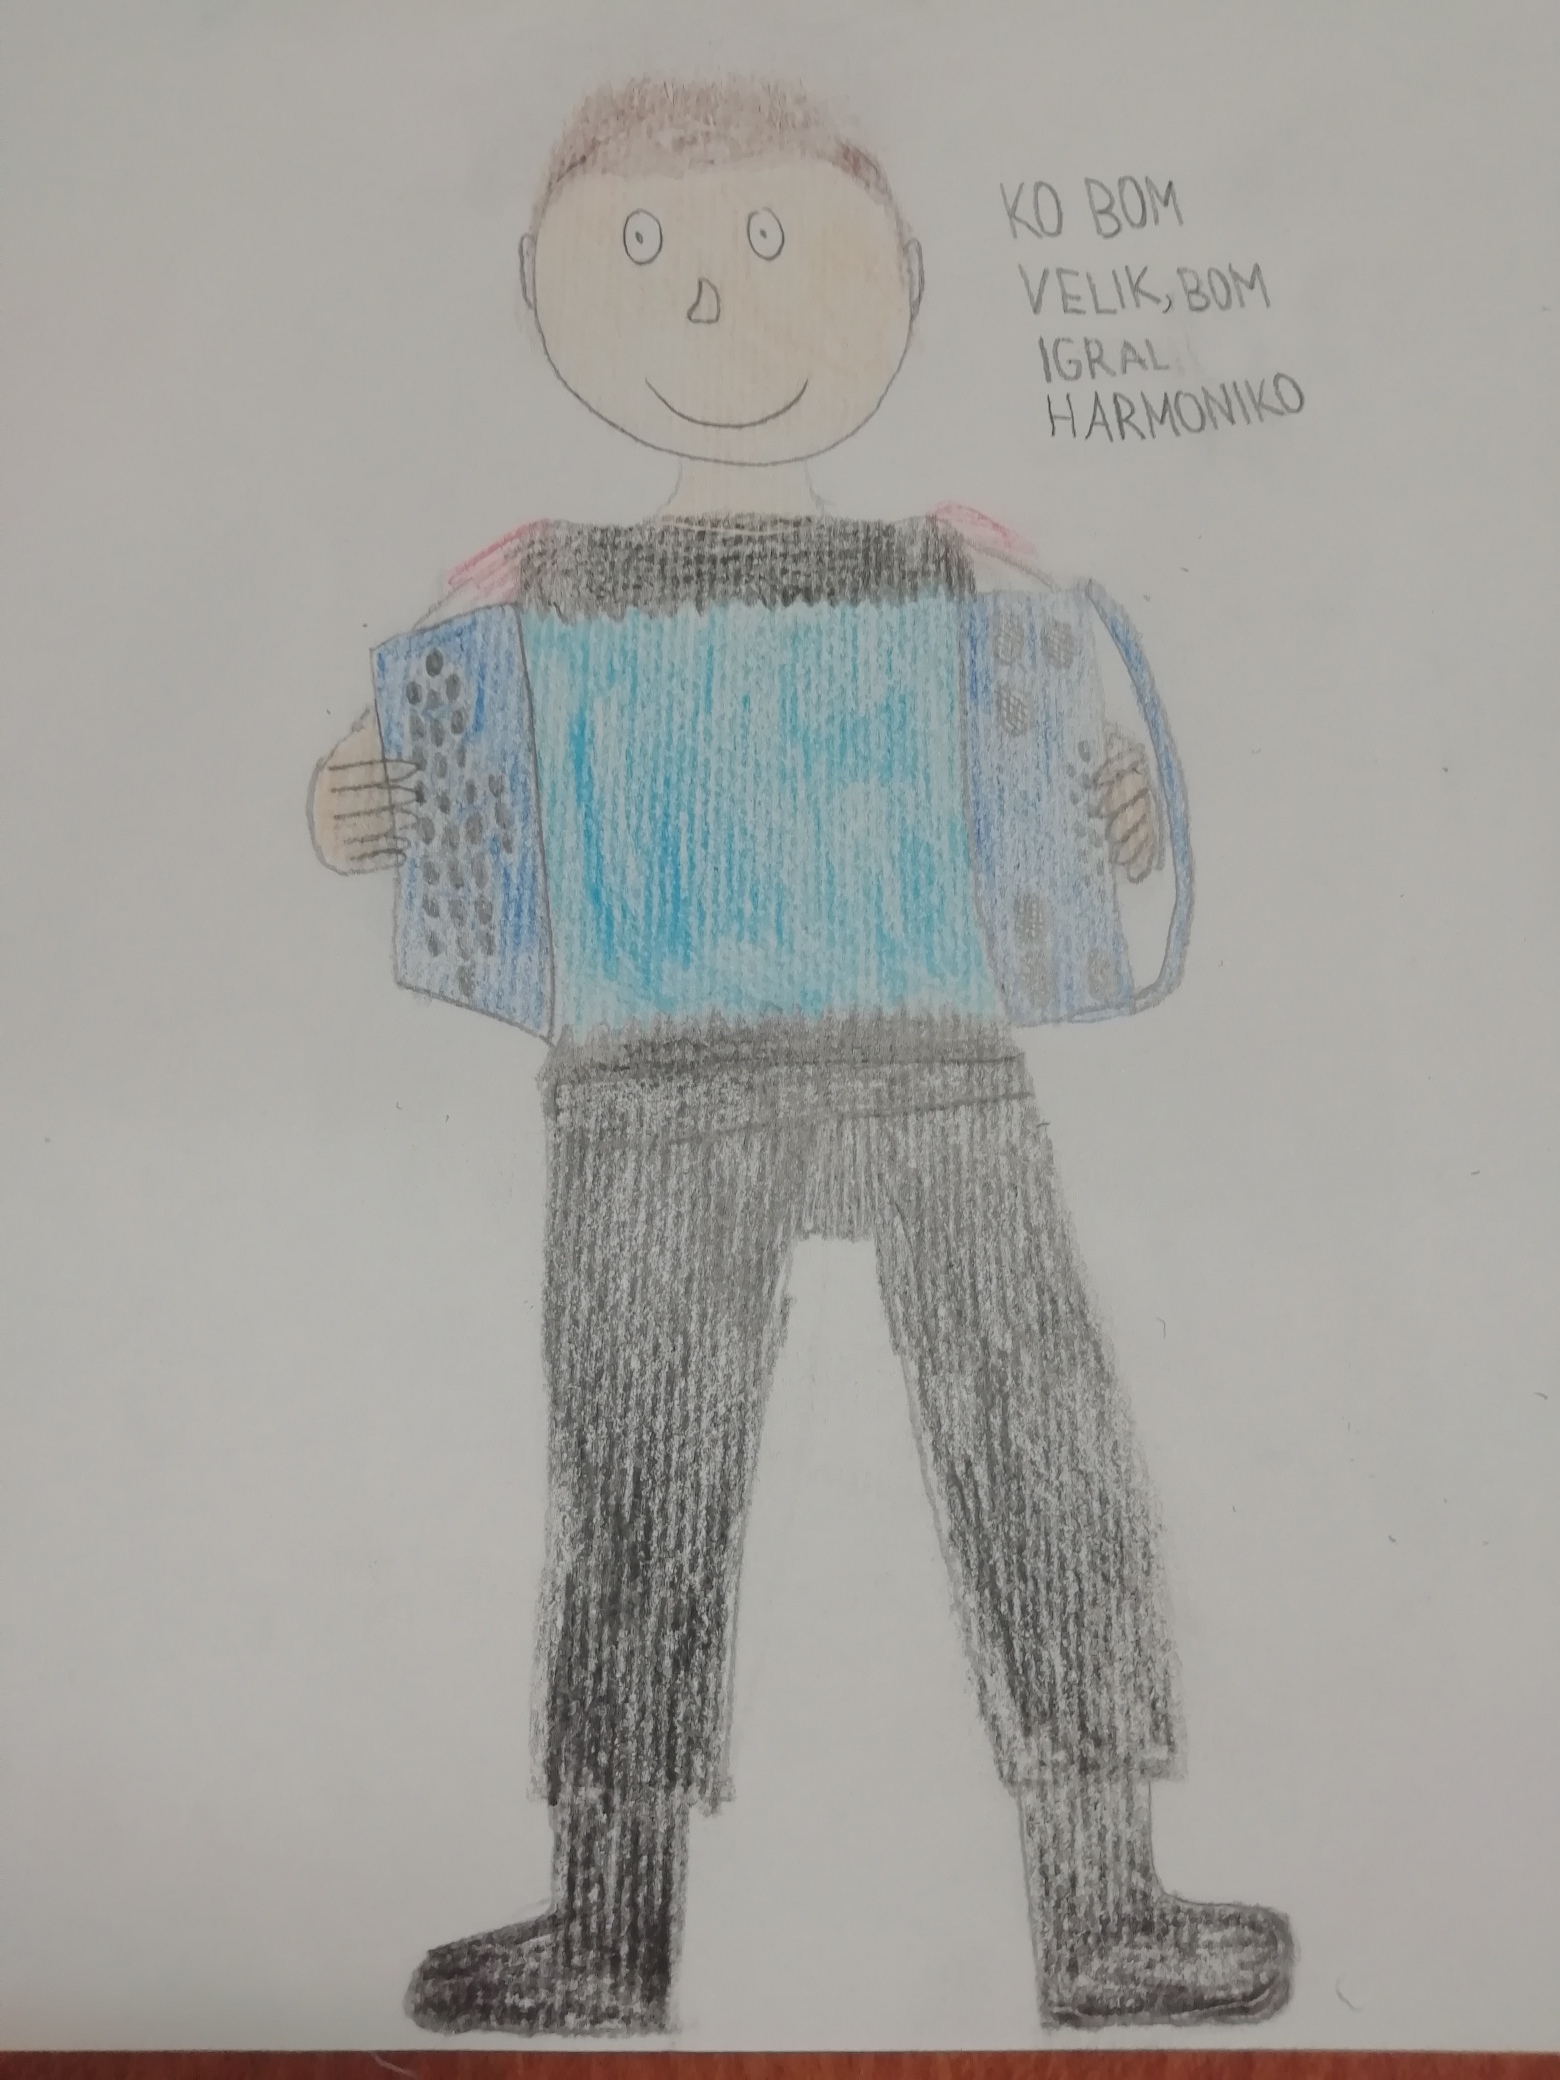 KO BOM
VELIK, BOM
IGRAL
HARMONIKO